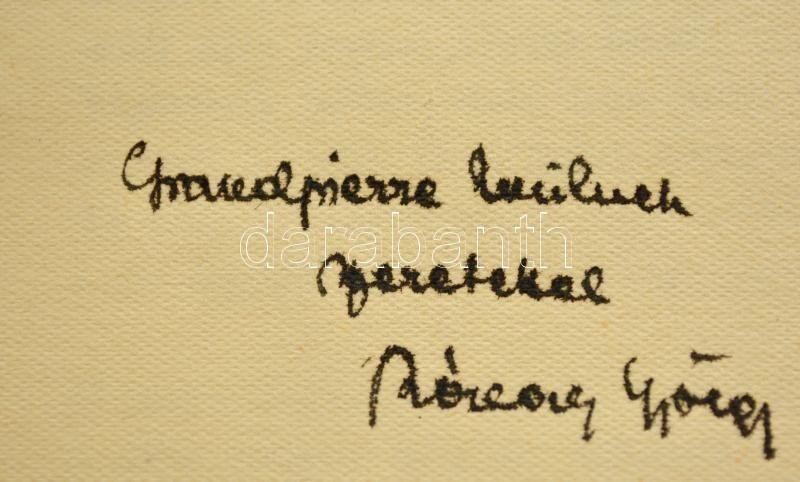 Grandpierre Emilnek
szeretettel
darabanth
Rónay György